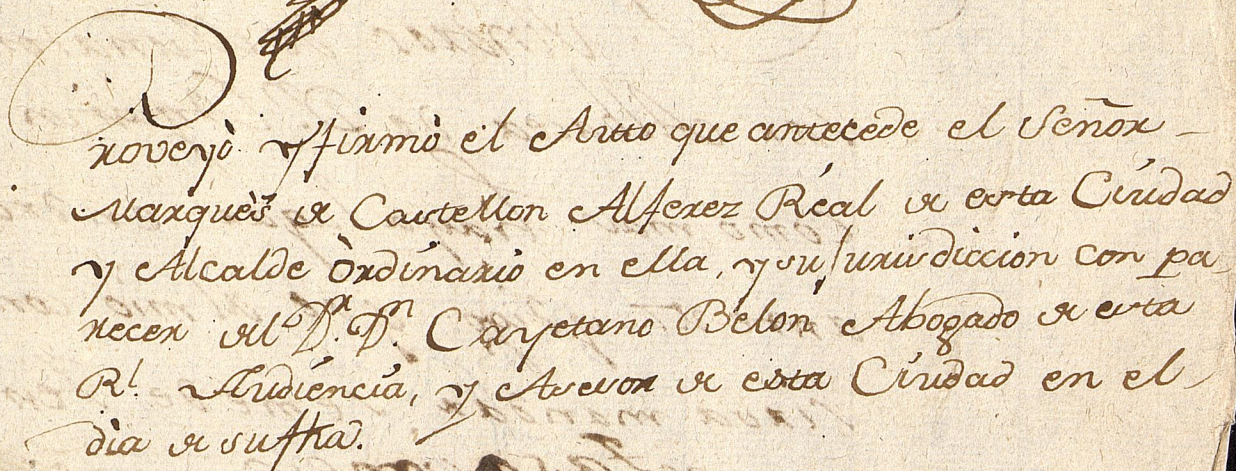 Proveyò y firmò el Auto que antecede el Señor
Marquès de Castellon Alferez Réal de esta Ciudad
y Alcalde Òrdinario en ella, y su Jurisdiccion con pa
recer del Dr. Dn. Cayetano Belòn Abogado de esta
Rl. Audiencia, y Asesor de esta Ciudad en el
dia de su fha.